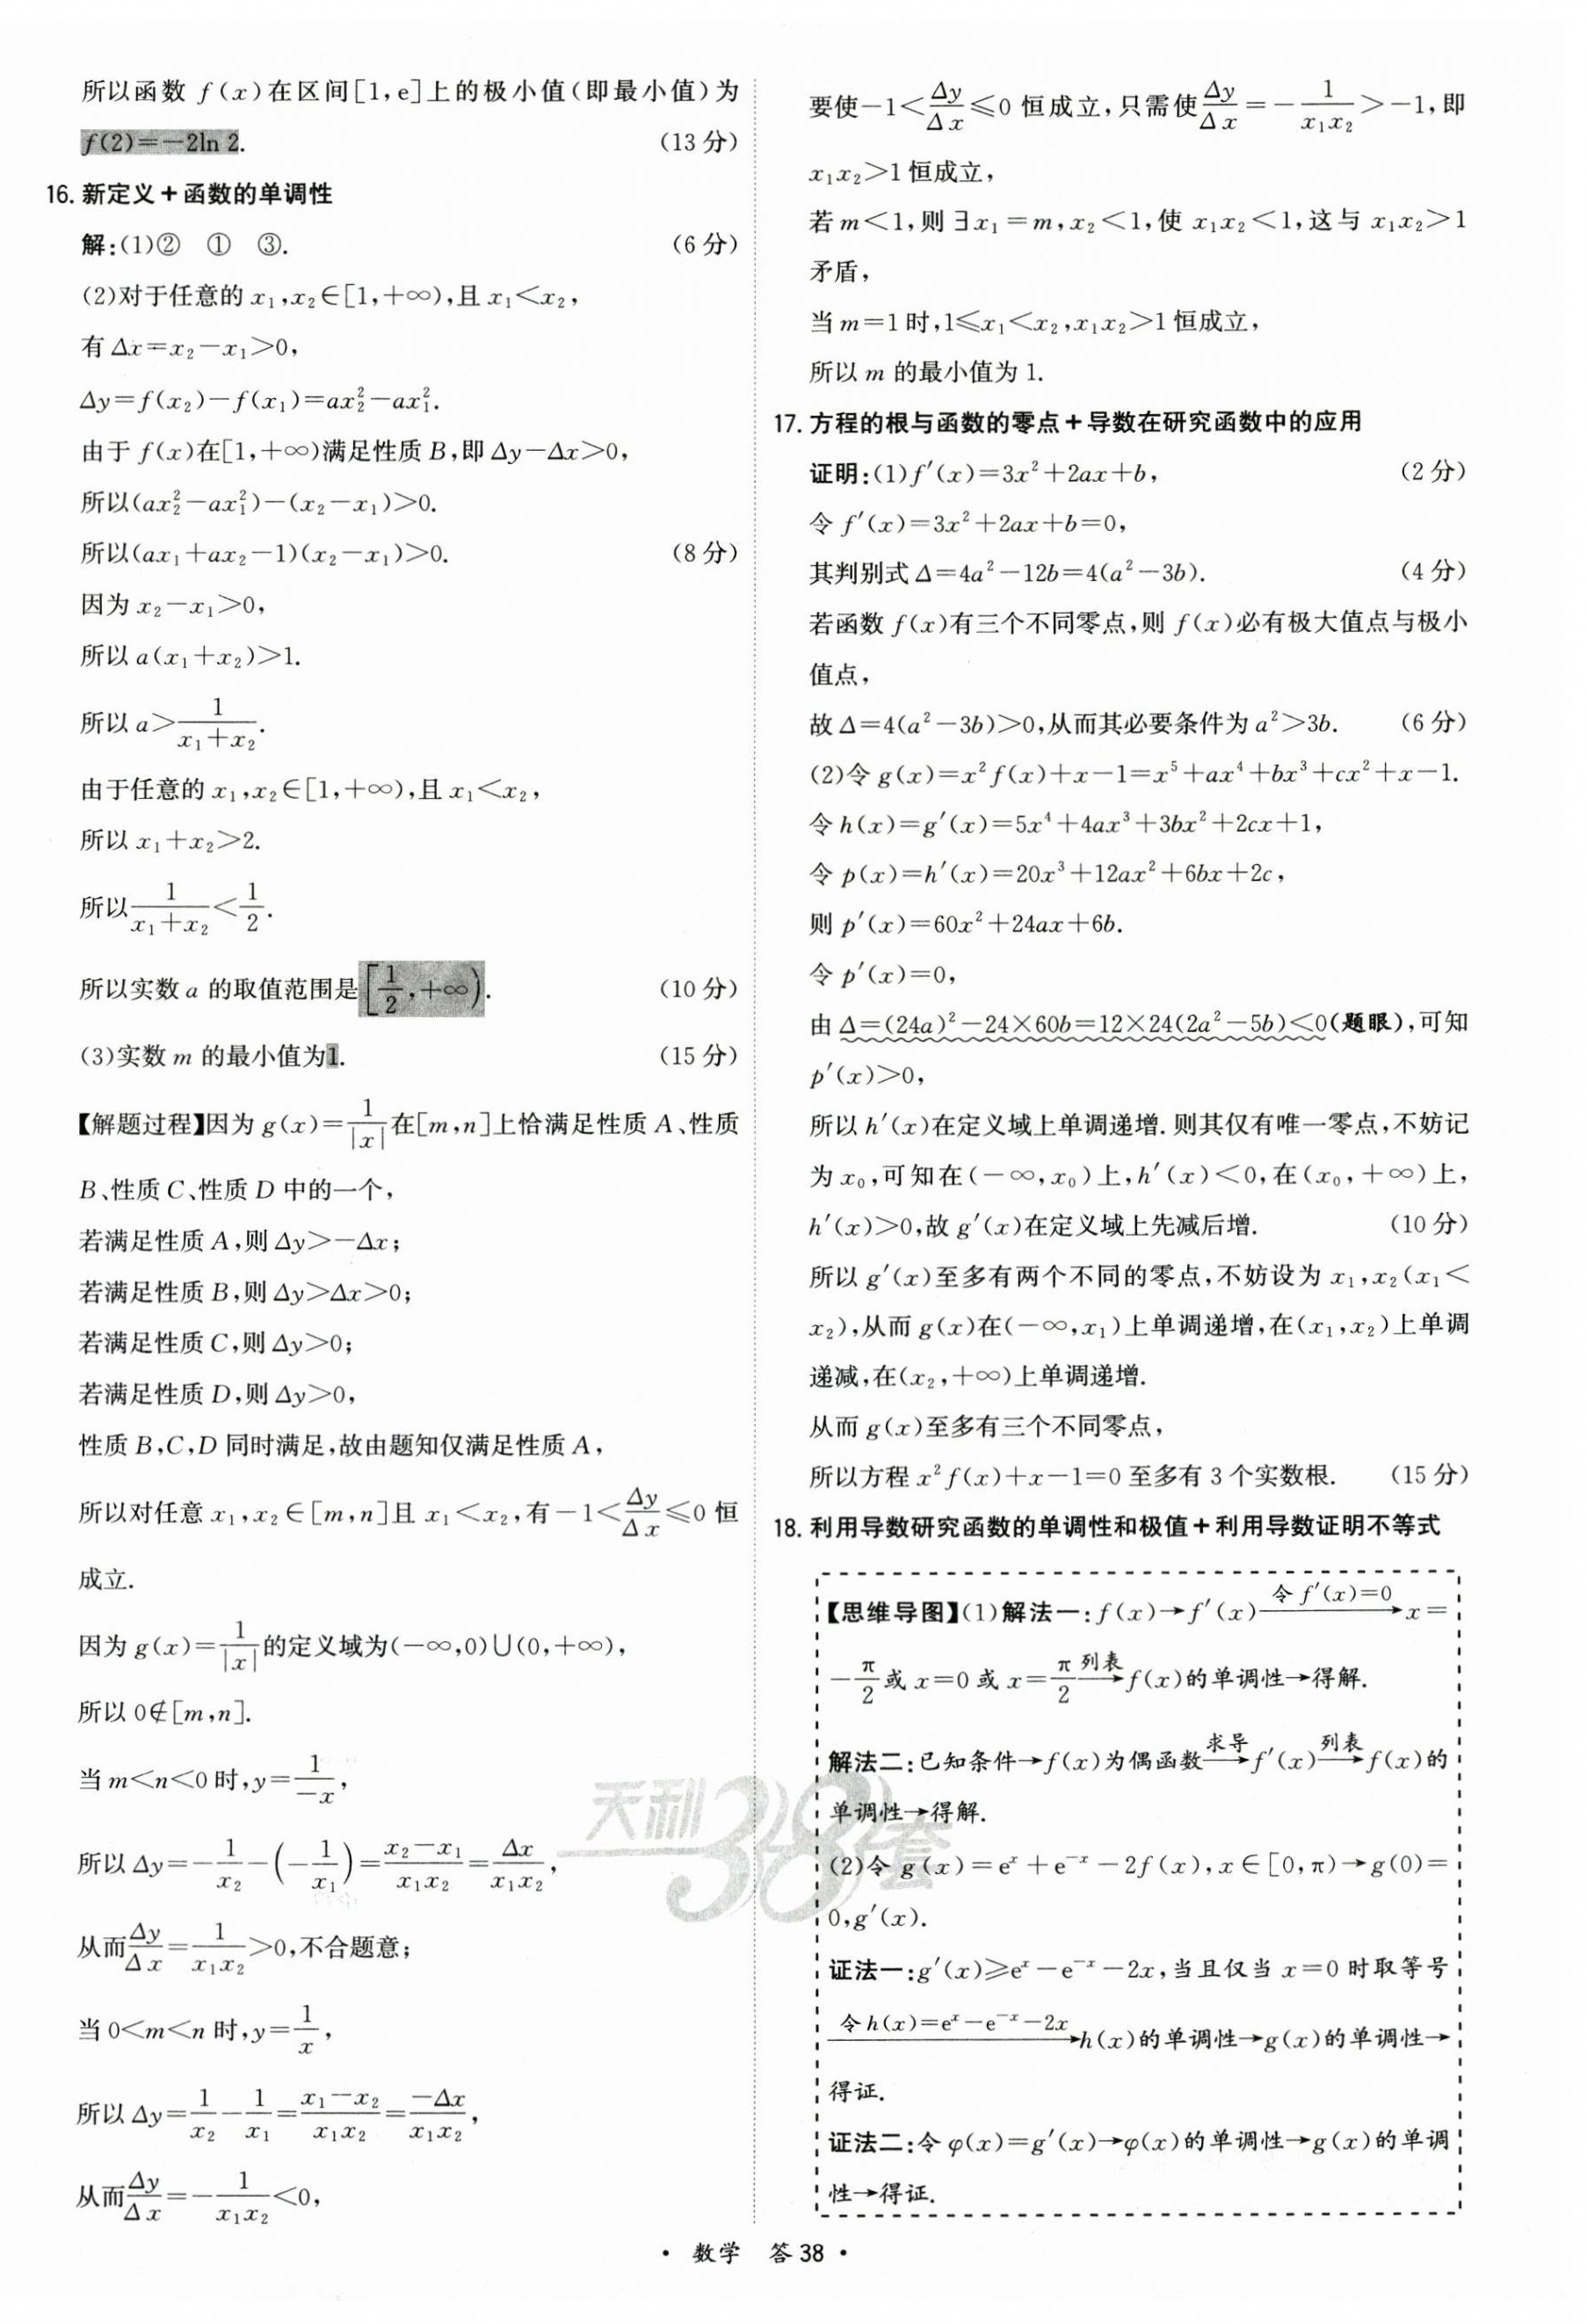 所以函数 f(x)在区间[1,e]上的极小值(即最小值)为
f(2)=-2ln 2. (13 分)
16. 新定义+函数的单调性
解:(1)② ① ③. (6 分)
(2)对于任意的 x₁,x₂∈[1,+∞),且 x₁<x₂,
有 Δx=x₂-x₁>0,
Δy=f(x₂)-f(x₁)=ax₂²-ax₁².
由于 f(x)在[1,+∞)满足性质 B,即 Δy-Δx>0,
所以(ax₂²-ax₁²)-(x₂-x₁)>0.
所以(ax₁+ax₂-1)(x₂-x₁)>0. (8 分)
因为 x₂-x₁>0,
所以 a(x₁+x₂)>1.
所以 a>1/(x₁+x₂).
由于任意的 x₁,x₂∈[1,+∞),且 x₁<x₂,
所以 x₁+x₂>2.
所以 1/(x₁+x₂)<1/2.
所以实数 a 的取值范围是[1/2,+∞). (10 分)
(3)实数 m 的最小值为1. (15 分)
【解题过程】因为 g(x)=1/|x|在[m,n]上恰满足性质 A、性质
B、性质 C、性质 D 中的一个,
若满足性质 A,则 Δy>-Δx;
若满足性质 B,则 Δy>Δx>0;
若满足性质 C,则 Δy>0;
若满足性质 D,则 Δy>0,
性质 B,C,D 同时满足,故由题知仅满足性质 A,
所以对任意 x₁,x₂∈[m,n]且 x₁<x₂,有-1<Δy/Δx≤0 恒
成立.
因为 g(x)=1/|x|的定义域为(-∞,0)∪(0,+∞),
所以 0∉[m,n].
当 m<n<0 时,y=1/(-x),
所以 Δy=-1/x₂-(-1/x₁)=(x₂-x₁)/(x₁x₂)=Δx/(x₁x₂),
从而Δy/Δx=1/(x₁x₂)>0,不合题意;
当 0<m<n 时,y=1/x,
所以 Δy=1/x₂-1/x₁=(x₁-x₂)/(x₁x₂)=-Δx/(x₁x₂),
从而Δy/Δx=-1/(x₁x₂)<0,
要使-1<Δy/Δx≤0 恒成立,只需使Δy/Δx=-1/(x₁x₂)>-1,即
x₁x₂>1 恒成立,
若 m<1,则∃x₁=m,x₂<1,使 x₁x₂<1,这与 x₁x₂>1
矛盾,
当 m=1 时,1≤x₁<x₂,x₁x₂>1 恒成立,
所以 m 的最小值为 1.
17. 方程的根与函数的零点+导数在研究函数中的应用
证明:(1)f′(x)=3x²+2ax+b, (2 分)
令 f′(x)=3x²+2ax+b=0,
其判别式 Δ=4a²-12b=4(a²-3b). (4 分)
若函数 f(x)有三个不同零点,则 f(x)必有极大值点与极小
值点,
故 Δ=4(a²-3b)>0,从而其必要条件为 a²>3b. (6 分)
(2)令 g(x)=x²f(x)+x-1=x⁵+ax⁴+bx³+cx²+x-1.
令 h(x)=g′(x)=5x⁴+4ax³+3bx²+2cx+1,
令 p(x)=h′(x)=20x³+12ax²+6bx+2c,
则 p′(x)=60x²+24ax+6b.
令 p′(x)=0,
由 Δ=(24a)²-24×60b=12×24(2a²-5b)<0(题眼),可知
p′(x)>0,
所以 h′(x)在定义域上单调递增.则其仅有唯一零点,不妨记
为 x₀,可知在(-∞,x₀)上,h′(x)<0,在(x₀,+∞)上,
h′(x)>0,故 g′(x)在定义域上先减后增. (10 分)
所以 g′(x)至多有两个不同的零点,不妨设为 x₁,x₂(x₁<
x₂),从而 g(x)在(-∞,x₁)上单调递增,在(x₁,x₂)上单调
递减,在(x₂,+∞)上单调递增.
从而 g(x)至多有三个不同零点,
所以方程 x²f(x)+x-1=0 至多有 3 个实数根. (15 分)
18. 利用导数研究函数的单调性和极值+利用导数证明不等式
【思维导图】(1)解法一:f(x)→f′(x) 令 f′(x)=0→x=
-π/2或 x=0 或 x=π/2 列表→f(x)的单调性→得解.
解法二:已知条件→f(x)为偶函数 求导→f′(x) 列表→f(x)的
单调性→得解.
(2)令 g(x)=eˣ+e⁻ˣ-2f(x),x∈[0,π)→g(0)=
0,g′(x).
证法一:g′(x)≥eˣ-e⁻ˣ-2x,当且仅当 x=0 时取等号
令 h(x)=eˣ-e⁻ˣ-2x→h(x)的单调性→g(x)的单调性→
得证.
证法二:令 φ(x)=g′(x)→φ(x)的单调性→g(x)的单调
性→得证.
天利38套
• 数学 答 38 •